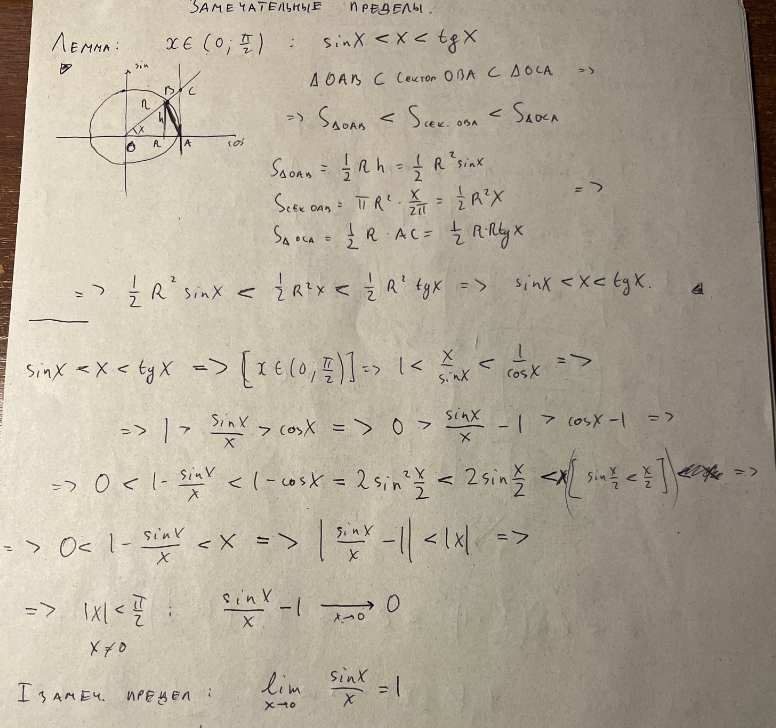 ЗАМЕЧАТЕЛЬНЫЕ ПРЕДЕЛЫ.
ЛЕММА: x ∈ (0; π/2) : sinx < x < tgx
sin
R B C
h
x
O R A cos
ΔOAB ⊂ сектор OBA ⊂ ΔOCA =>
=> S_ΔOAB < S_сек. OBA < S_ΔOCA
S_ΔOAB = 1/2 R h = 1/2 R² sinx
S_сек OAB = πR² · x/2π = 1/2 R²x =>
S_ΔOCA = 1/2 R · AC = 1/2 R·Rtgx
=> 1/2 R² sinx < 1/2 R²x < 1/2 R² tgx => sinx < x < tgx.
sinx < x < tgx => [x ∈ (0; π/2)] => 1 < x/sinx < 1/cosx =>
=> 1 > sinx/x > cosx => 0 > sinx/x - 1 > cosx - 1 =>
=> 0 < 1 - sinx/x < 1 - cosx = 2 sin² x/2 < 2 sin x/2 < x ([sin x/2 < x/2]) =>
=> 0 < 1 - sinx/x < x => |sinx/x - 1| < |x| =>
=> |x| < π/2 : sinx/x - 1 →_{x→0} 0
x ≠ 0
I ЗАМЕЧ. ПРЕДЕЛ : lim_{x→0} sinx/x = 1